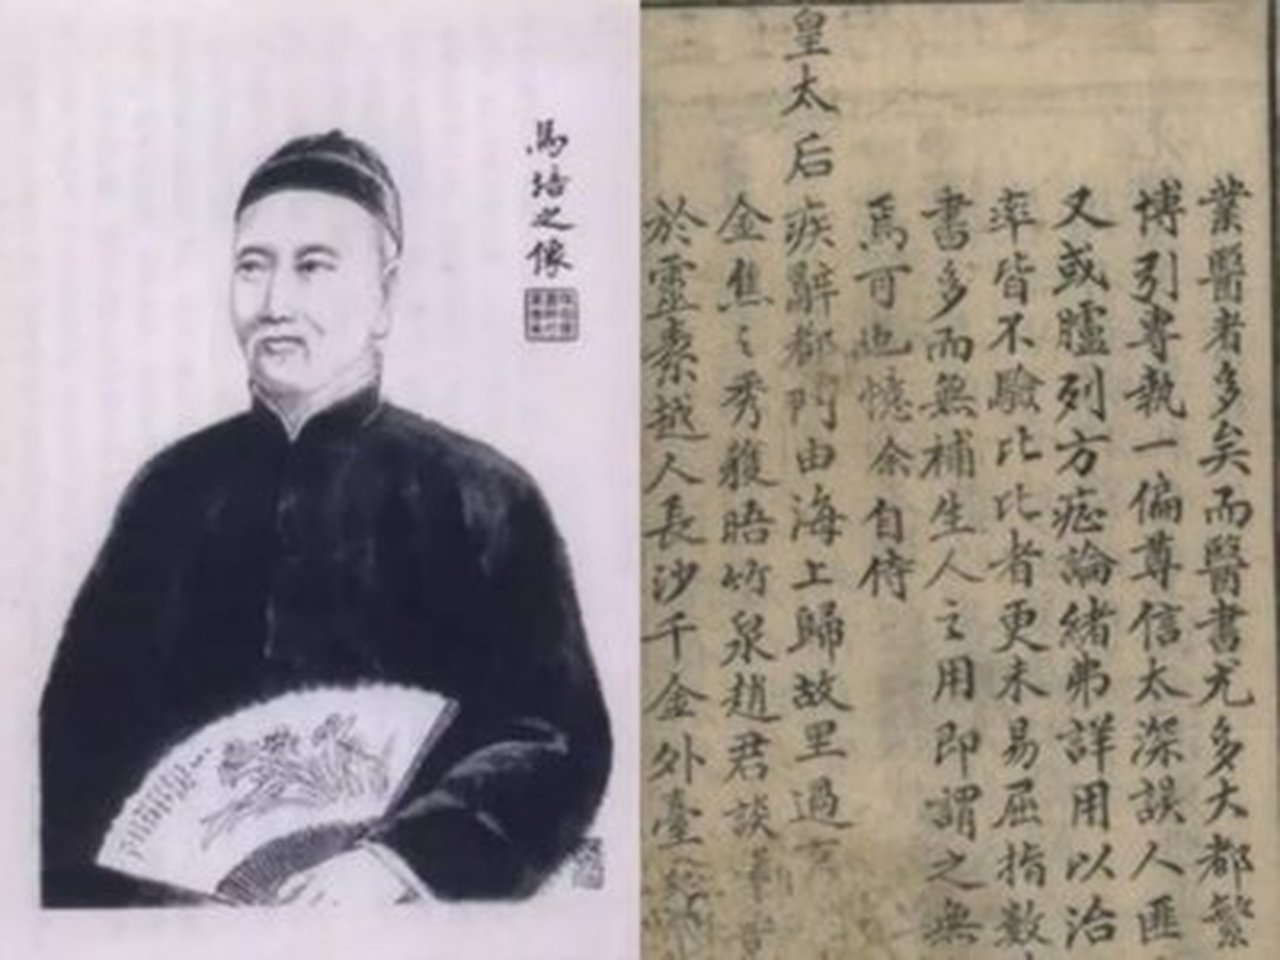 馬培之像
業醫者多矣而醫書尤多大都繁
博引專執一偏尊信太深誤人匪
又或臚列方症論緒弗詳用以治
率皆不驗比比者更未易屈指數
書多而無補生人之用即謂之無
焉可也憶余自侍
皇太后
疾辭都門由海上歸故里過
金焦之秀獲晤竹泉趙君談
於靈素越人長沙千金外臺